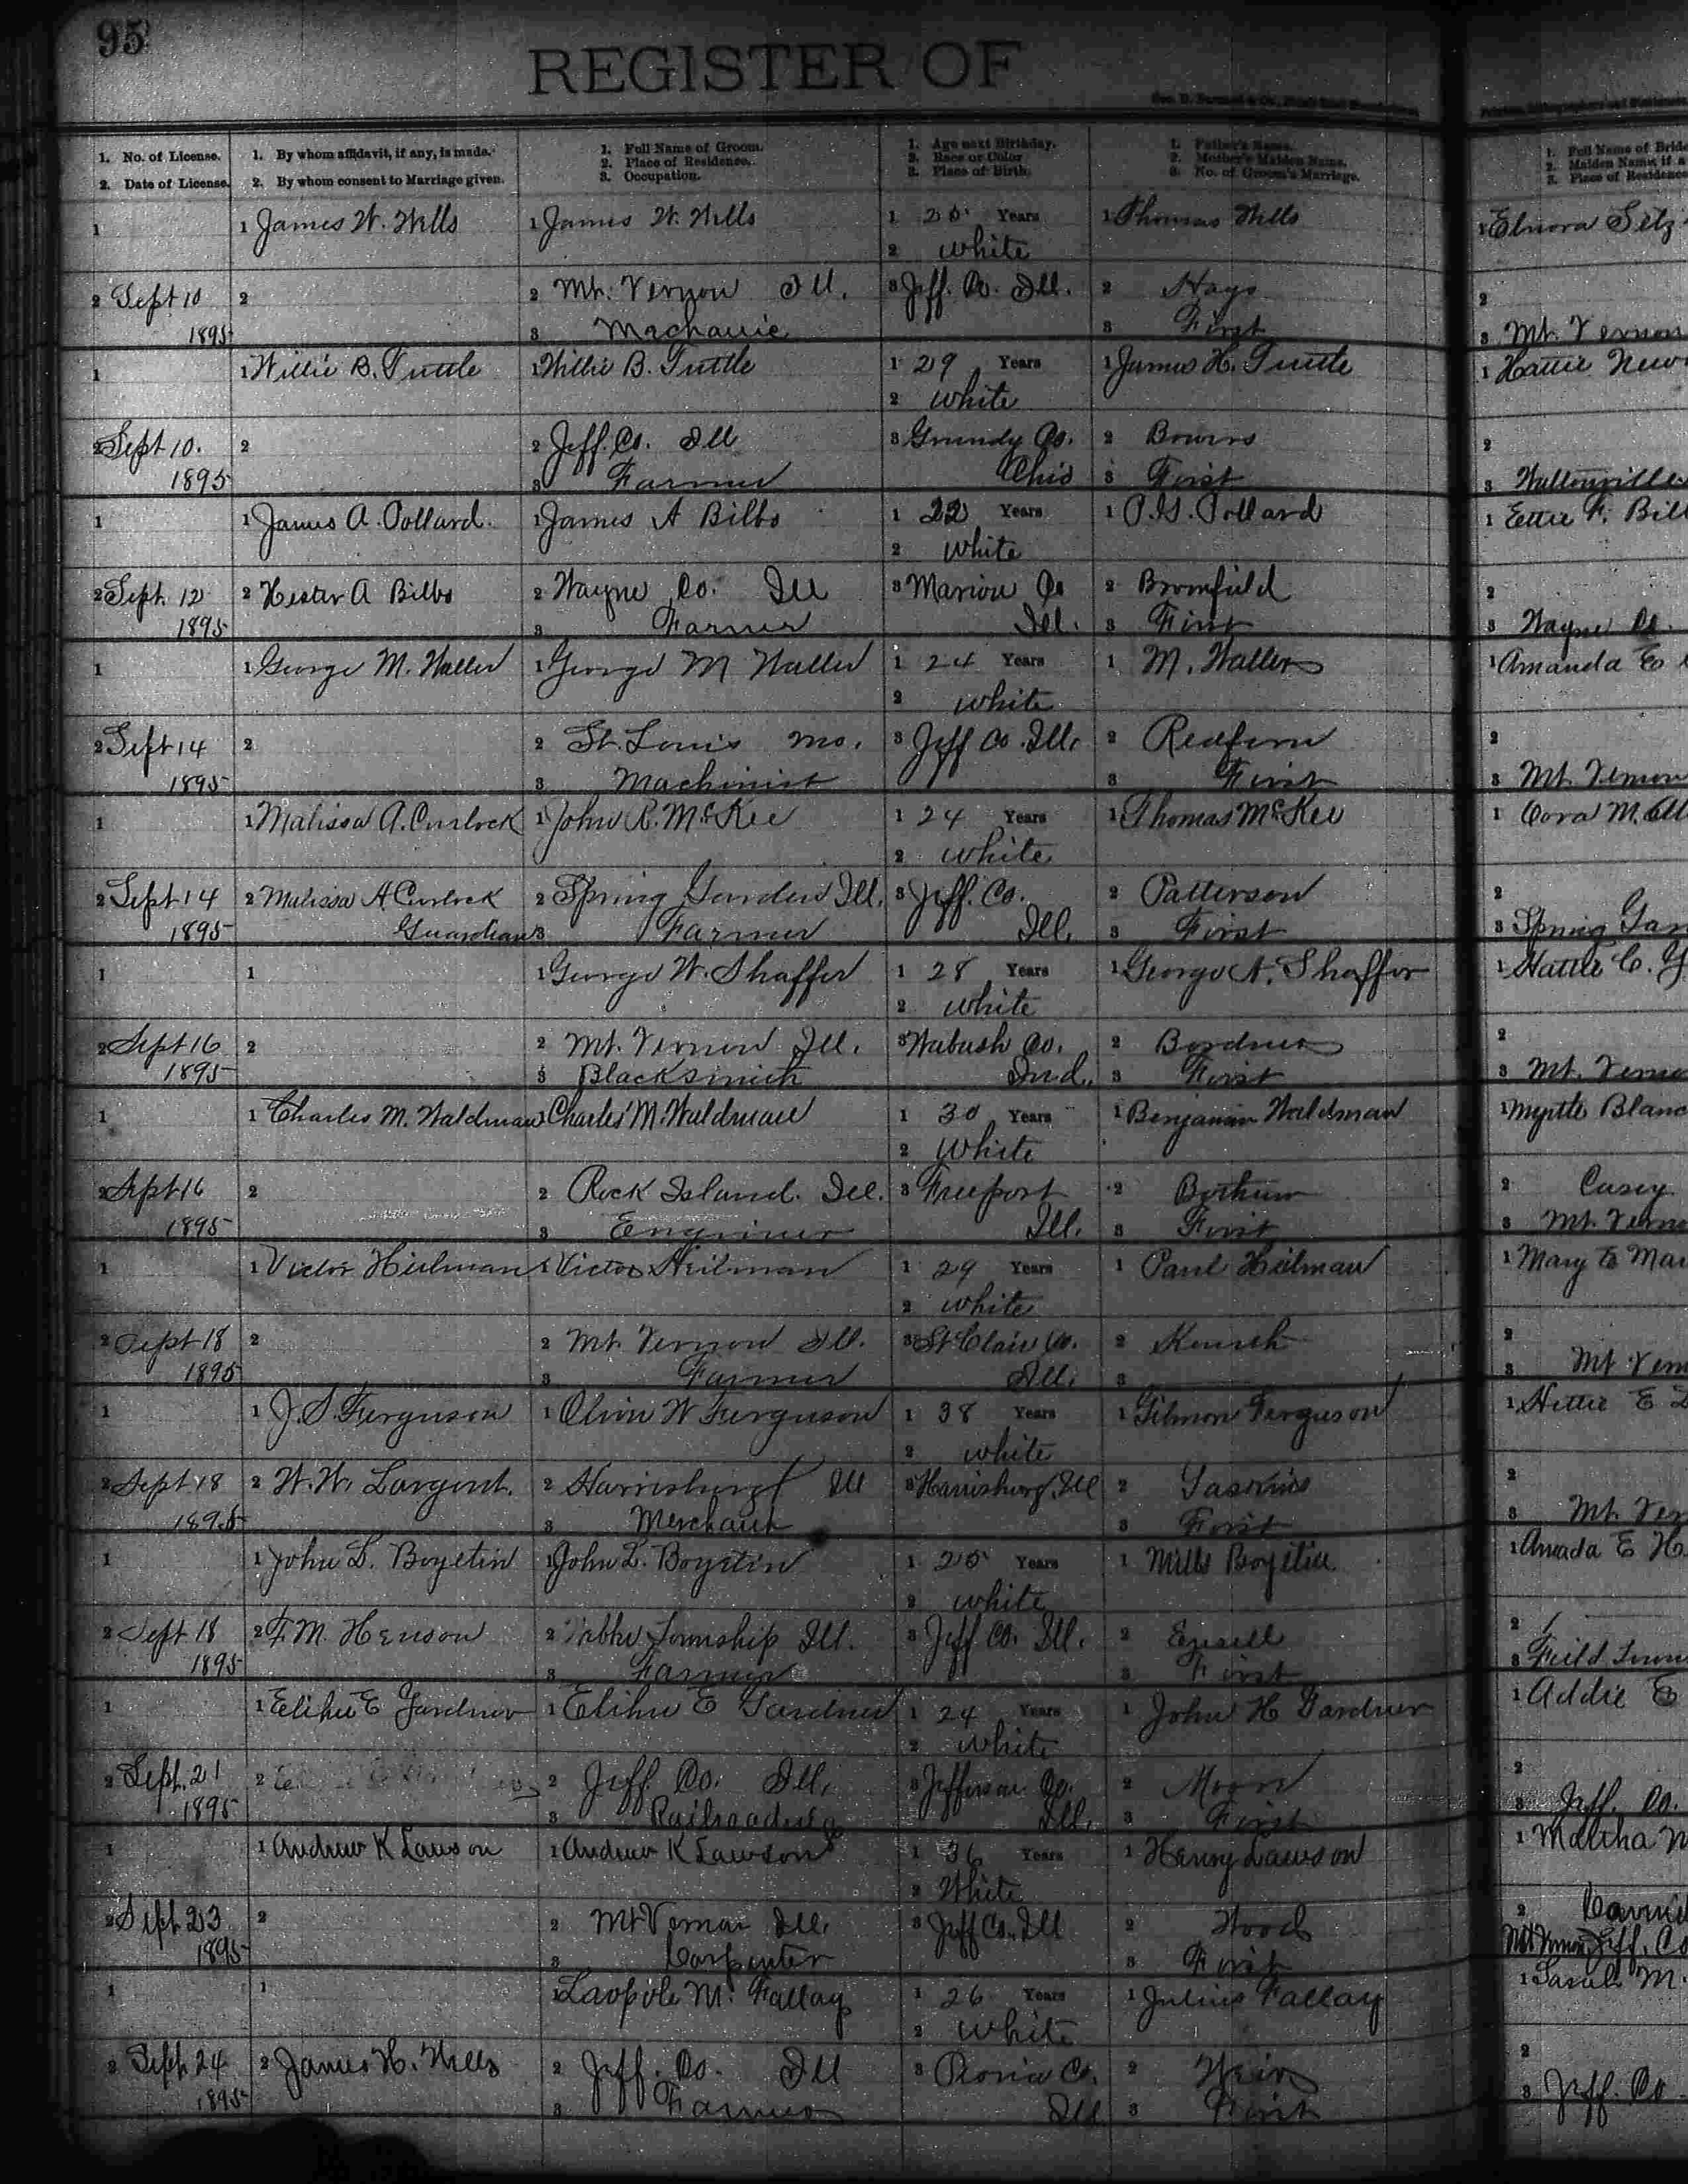 95
REGISTER OF
1. No. of License.
2. Date of License.
1. By whom affidavit, if any, is made.
2. By whom consent to Marriage given.
1. Full Name of Groom.
2. Place of Residence.
3. Occupation.
1. Age next Birthday.
2. Race or Color
3. Place of Birth.
1. Father's Name.
2. Mother's Maiden Name.
3. No. of Groom's Marriage.
1. Full Name of Bride
2. Maiden Name, if a
3. Place of Residence
1 1 James W. Wells 1 James W. Wells 1 Years 1 Thomas Wells 1 Elnora Setz
2 white
2 Sept 10 2 2 Mt. Vernon Ill. 3 Jeff. Co. Ill. 2 Hays 2
1895 3 Mechanic 3 First 3 Mt. Vernon
1 1 Willie B. Tuttle 1 Willie B. Tuttle 1 29 Years 1 James H. Tuttle 1 Hattie New
2 white
2 Sept 10. 2 2 Jeff. Co. Ill 3 Grundy Co. 2 Bowers 2
1895 3 Farmer Ohio 3 First 3 Waltonville
1 1 James A. Pollard. 1 James A Bilbo 1 22 Years 1 Pollard 1 Ettie F. Bil
2 white
2 Sept. 12 2 Hester A Bilbo 2 Wayne Co. Ill 3 Marion Co 2 Bromfield 2
1895 3 Farmer Ill. 3 First 3 Wayne Co.
1 1 George M. Waller 1 George M Waller 1 24 Years 1 M. Waller 1 Amanda E
2 white
2 Sept 14 2 2 St. Louis Mo. 3 Jeff Co. Ill. 2 Redfern 2
1895 3 Machinist 3 First 3 Mt. Vernon
1 1 Malissa A. Curlock 1 John R. McKee 1 24 Years 1 Thomas McKee 1 Cora M.
2 white
2 Sept 14 2 Malissa A. Curlock 2 Spring Garden Ill. 3 Jeff. Co. 2 Patterson 2
1895 Guardian 3 Farmer Ill. 3 First 3 Spring Gar
1 1 1 George W. Shaffer 1 28 Years 1 George A. Shaffer 1 Hattie C.
2 white
2 Sept 16 2 2 Mt. Vernon Ill. 3 Wabash Co. 2 Bordner 2
1895 3 Blacksmith Ind. 3 First 3 Mt. Verno
1 1 Charles M. Waldman 1 Charles M. Waldman 1 30 Years 1 Benjamin Waldman 1 Myrtle Blanc
2 White
2 Sept 16 2 2 Rock Island. Ill. 3 Freeport 2 2 Casey
1895 3 Engineer Ill. 3 First 3 Mt. Verno
1 1 Victor Heilman 1 Victor Heilman 1 29 Years 1 Paul Heilman 1 Mary E Mar
2 white
2 Sept 18 2 2 Mt. Vernon Ill. 3 St Clair Co. 2 2
1895 3 Farmer Ill. 3 3 Mt Vern
1 1 J. S. Ferguson 1 Oliver W Ferguson 1 38 Years 1 Gilmon Ferguson 1 Nettie E
2 white
2 Sept 18 2 W. W. Largent. 2 Harrisburg Ill 3 Harrisburg, Ill 2 Gaskins 2
1895 3 Merchant 3 First 3 Mt. Ver
1 1 John L. Boyetin 1 John L. Boyetin 1 25 Years 1 Mills Boyetin 1 Amada E H
2 white
2 Sept 18 2 F. M. Henson 2 Township Ill. 3 Jeff Co. Ill. 2 Ezsell 2
1895 3 Farmer 3 First 3 Feild Town
1 1 Elihu E Gardner 1 Elihu E Gardner 1 24 Years 1 John H Gardner 1 Addie E
2 white
2 Sept. 21 2 2 Jeff. Co. Ill. 3 Jefferson Co. 2 Moore 2
1895 3 Railroading Ill. 3 First 3 Jeff. Co.
1 1 Andrew K Lawson 1 Andrew K Lawson 1 36 Years 1 Henry Lawson 1 Maltha M
2 White
2 Sept 23 2 2 Mt Vernon Ill. 3 Jeff Co. Ill 2 Wood 2
1895 3 Carpenter 3 First Mt Vernon Jeff. Co
1 1 1 Laopole M. Fallay 1 26 Years 1 Julius Fallay 1 Sarah M.
2 white
2 Sept 24 2 James H. Wells 2 Jeff. Co. Ill 3 Peoria Co. 2 Weir 2
1895 3 Farmer Ill 3 First 3 Jeff. Co